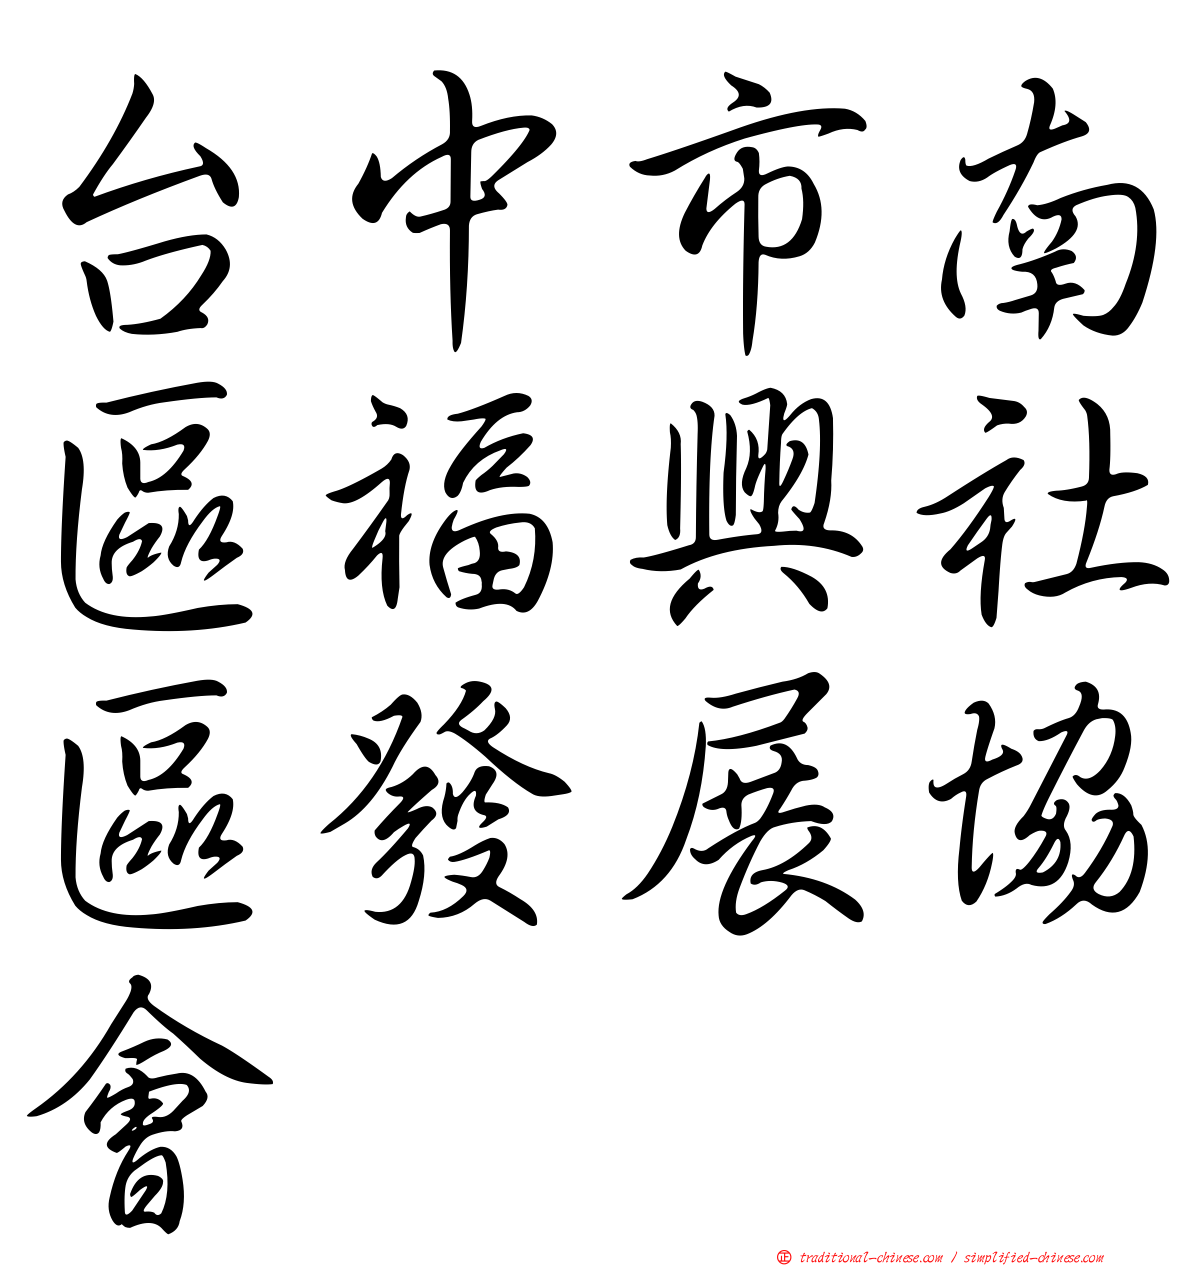 台中市南
區福興社
區發展協
會
㊣ traditional-chinese.com / simplified-chinese.com